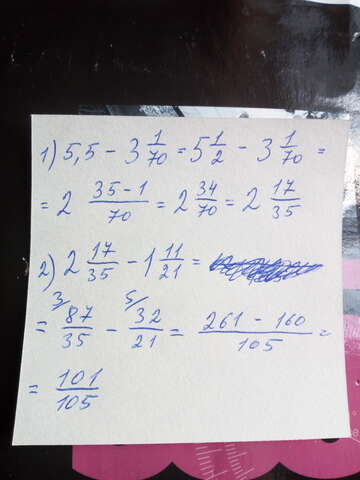 1) 5,5 - 3 1/70 = 5 1/2 - 3 1/70 =
= 2 35-1/70 = 2 34/70 = 2 17/35
2) 2 17/35 - 1 11/21 =
= 3/ 87/35 - 5/ 32/21 = 261 - 160/105 =
= 101/105